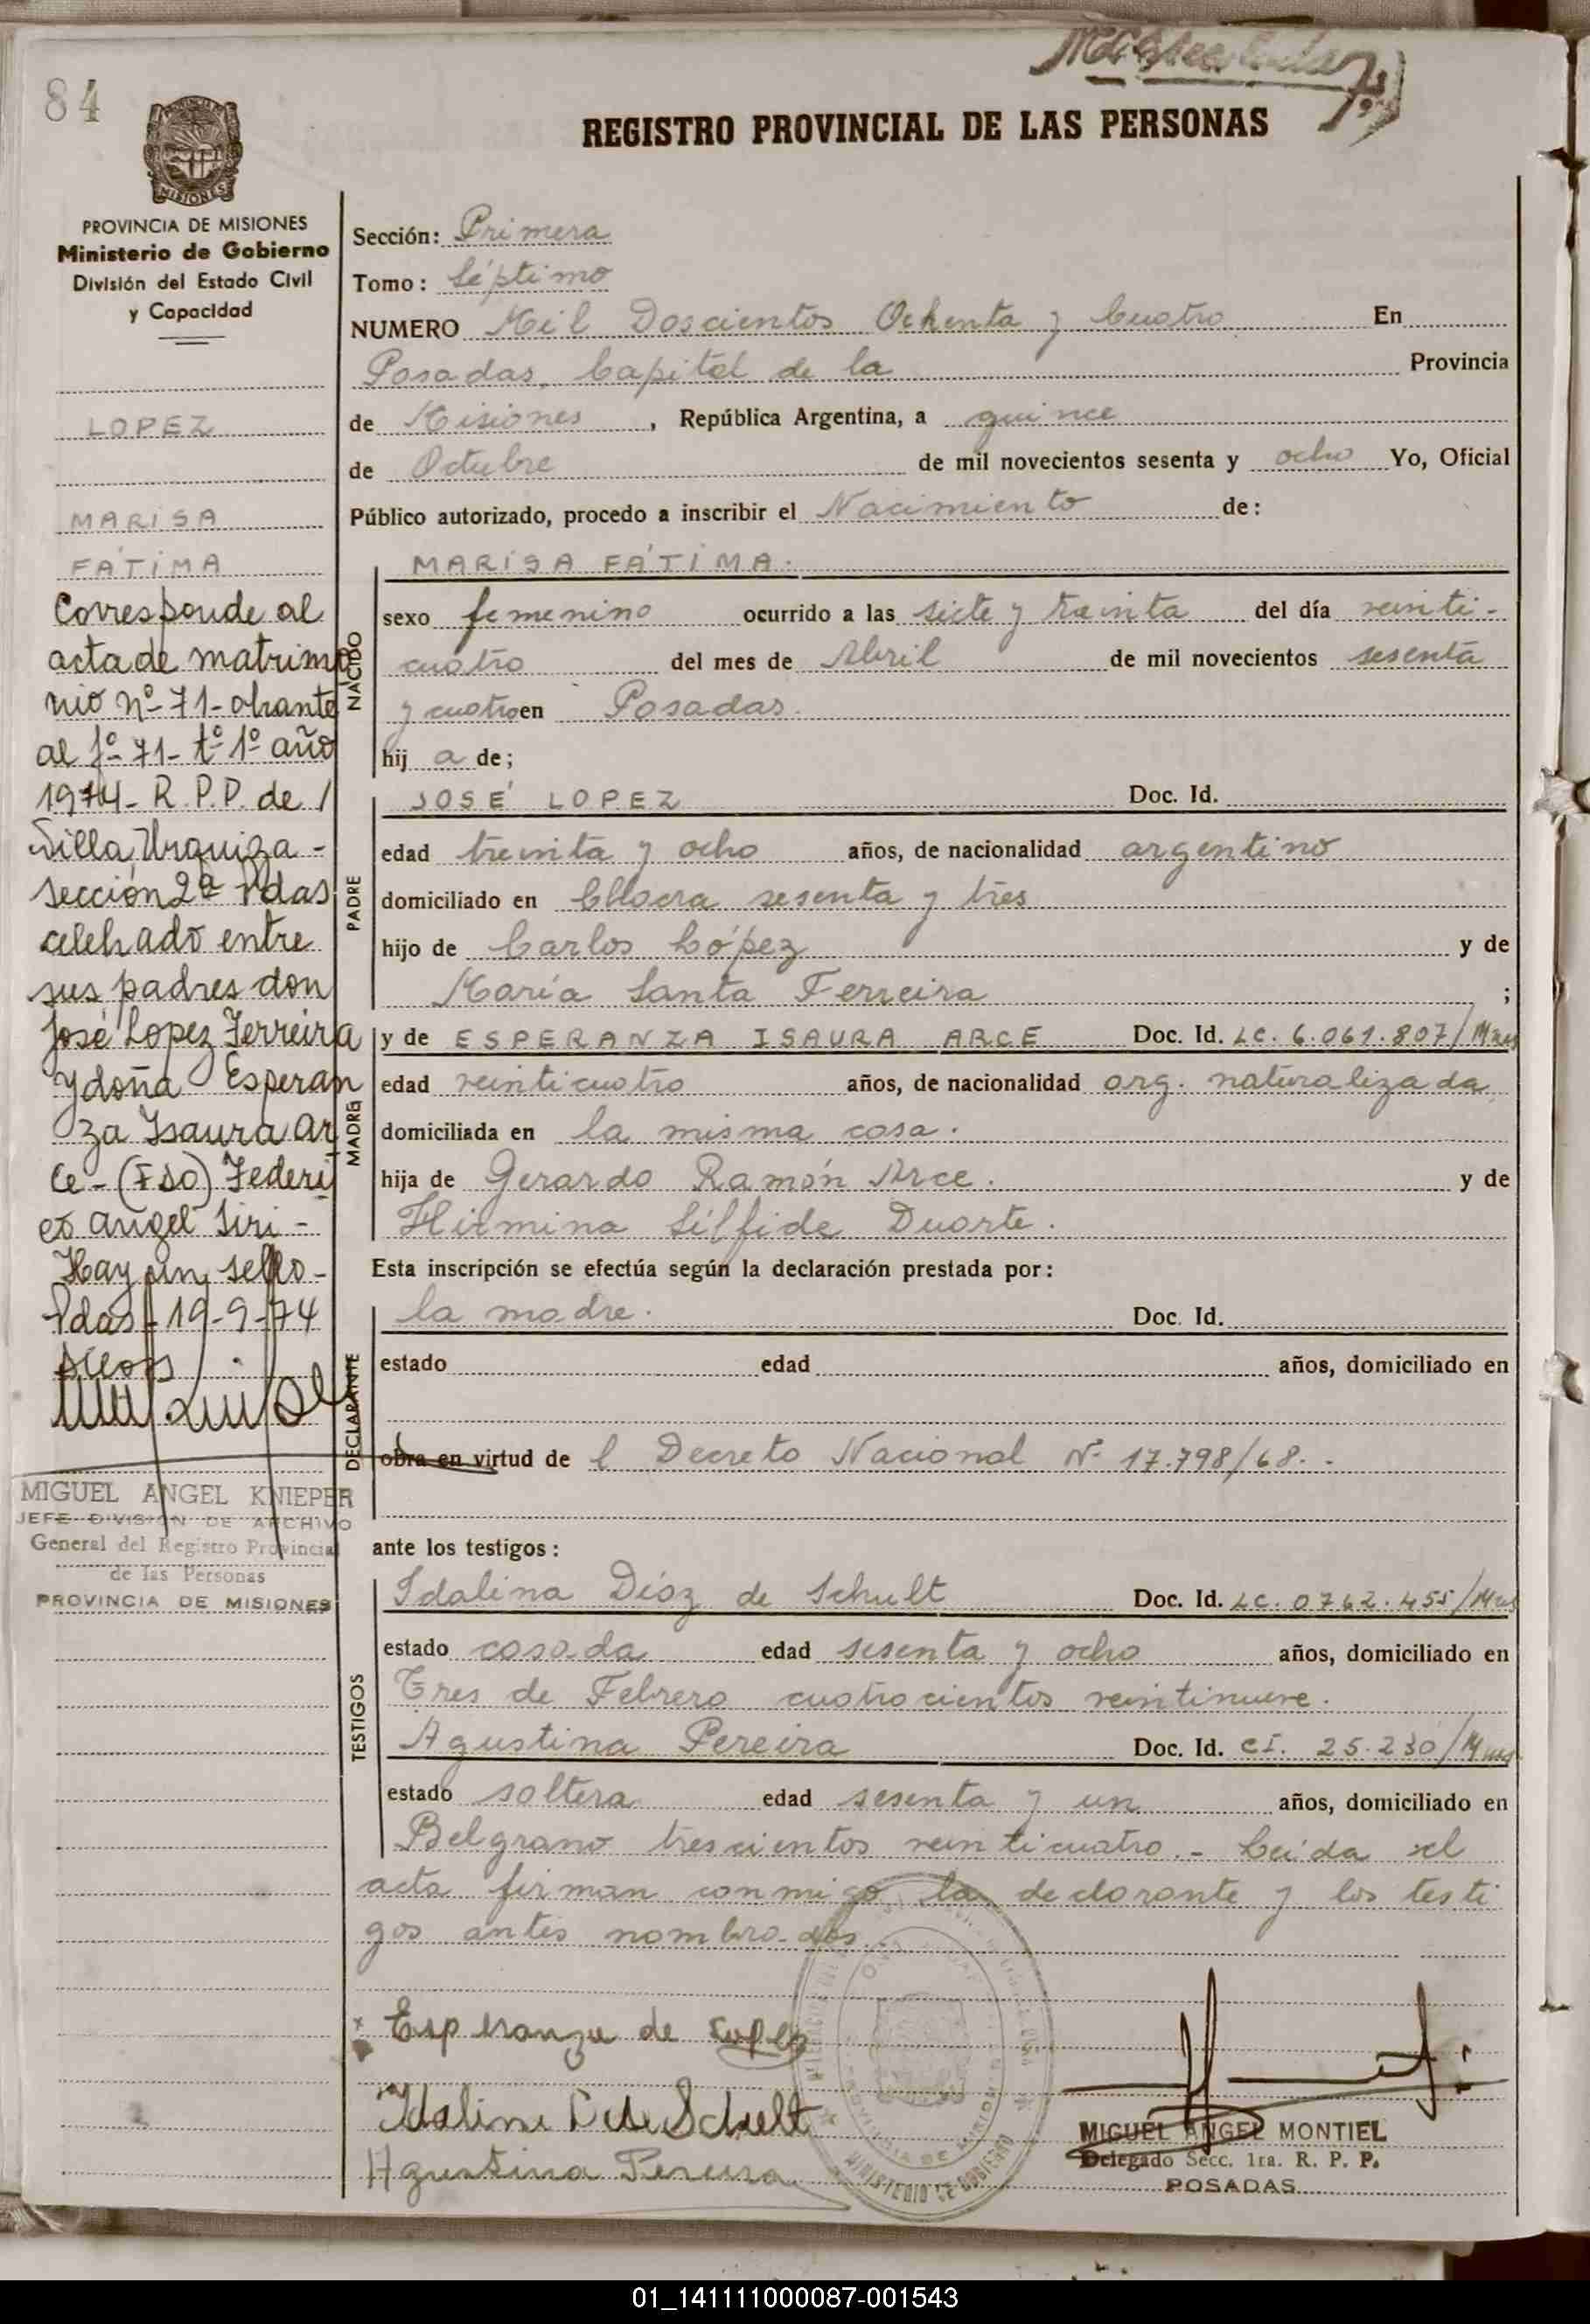 84
REGISTRO PROVINCIAL DE LAS PERSONAS
MISIONES
PROVINCIA DE MISIONES
Ministerio de Gobierno
División del Estado Civil
y Capacidad
LOPEZ
MARISA
FÁTIMA
Corresponde al
acta de matrimo
nio nº 71- obrante
al fº 71- tº 1º año
1974- R. P. P. de /
Villa Urquiza -
Sección 2ª Pdas
celebrado entre
sus padres don
José Lopez Ferreira
y doña Esperan
za Isaura Ar
ce - (FDO) Federi
co Angel Siri -
Hay un sello -
Pdas - 19-9-74
MIGUEL ANGEL KNIEPER
JEFE DIVISION DE ARCHIVO
General del Registro Provincial
de las Personas
PROVINCIA DE MISIONES
Sección: Primera
Tomo: Séptimo
NUMERO Mil Doscientos Ochenta y Cuatro En
Posadas, Capital de la Provincia
de Misiones, República Argentina, a quince
de Octubre de mil novecientos sesenta y ocho Yo, Oficial
Público autorizado, procedo a inscribir el Nacimiento de:
NACIDO
MARISA FÁTIMA.
sexo femenino ocurrido a las siete y treinta del día veinti-
cuatro del mes de Abril de mil novecientos sesenta
y cuatro en Posadas.
hij a de;
PADRE
JOSÉ LOPEZ Doc. Id.
edad treinta y ocho años, de nacionalidad argentino
domiciliado en Chacra sesenta y tres
hijo de Carlos López y de
María Santa Ferreira ;
MADRE
y de ESPERANZA ISAURA ARCE Doc. Id. LC. 6.061.807/Mnes
edad veinticuatro años, de nacionalidad arg. naturalizada
domiciliada en la misma casa.
hija de Gerardo Ramón Arce. y de
Hirmina Silfide Duarte.
Esta inscripción se efectúa según la declaración prestada por:
DECLARANTE
la madre. Doc. Id.
estado edad años, domiciliado en
obra en virtud de l Decreto Nacional Nº 17.798/68.-
ante los testigos:
TESTIGOS
Idalina Díaz de Schult Doc. Id. LC. 0762.455/Mnes
estado casada edad sesenta y ocho años, domiciliado en
Tres de Febrero cuatrocientos veintinueve.
Agustina Pereira Doc. Id. CI. 25.230/Mnes
estado soltera edad sesenta y un años, domiciliado en
Belgrano trescientos veinticuatro.- Leída el
acta firman conmigo la declarante y los testi
gos antes nombrados.
Esperanza de Lopez
Idalina D de Schult
Agustina Pereira
PROVINCIA DE MISIONES
MINISTERIO DE GOBIERNO
MIGUEL ANGEL MONTIEL
Delegado Secc. 1ra. R. P. P.
POSADAS
01_141111000087-001543